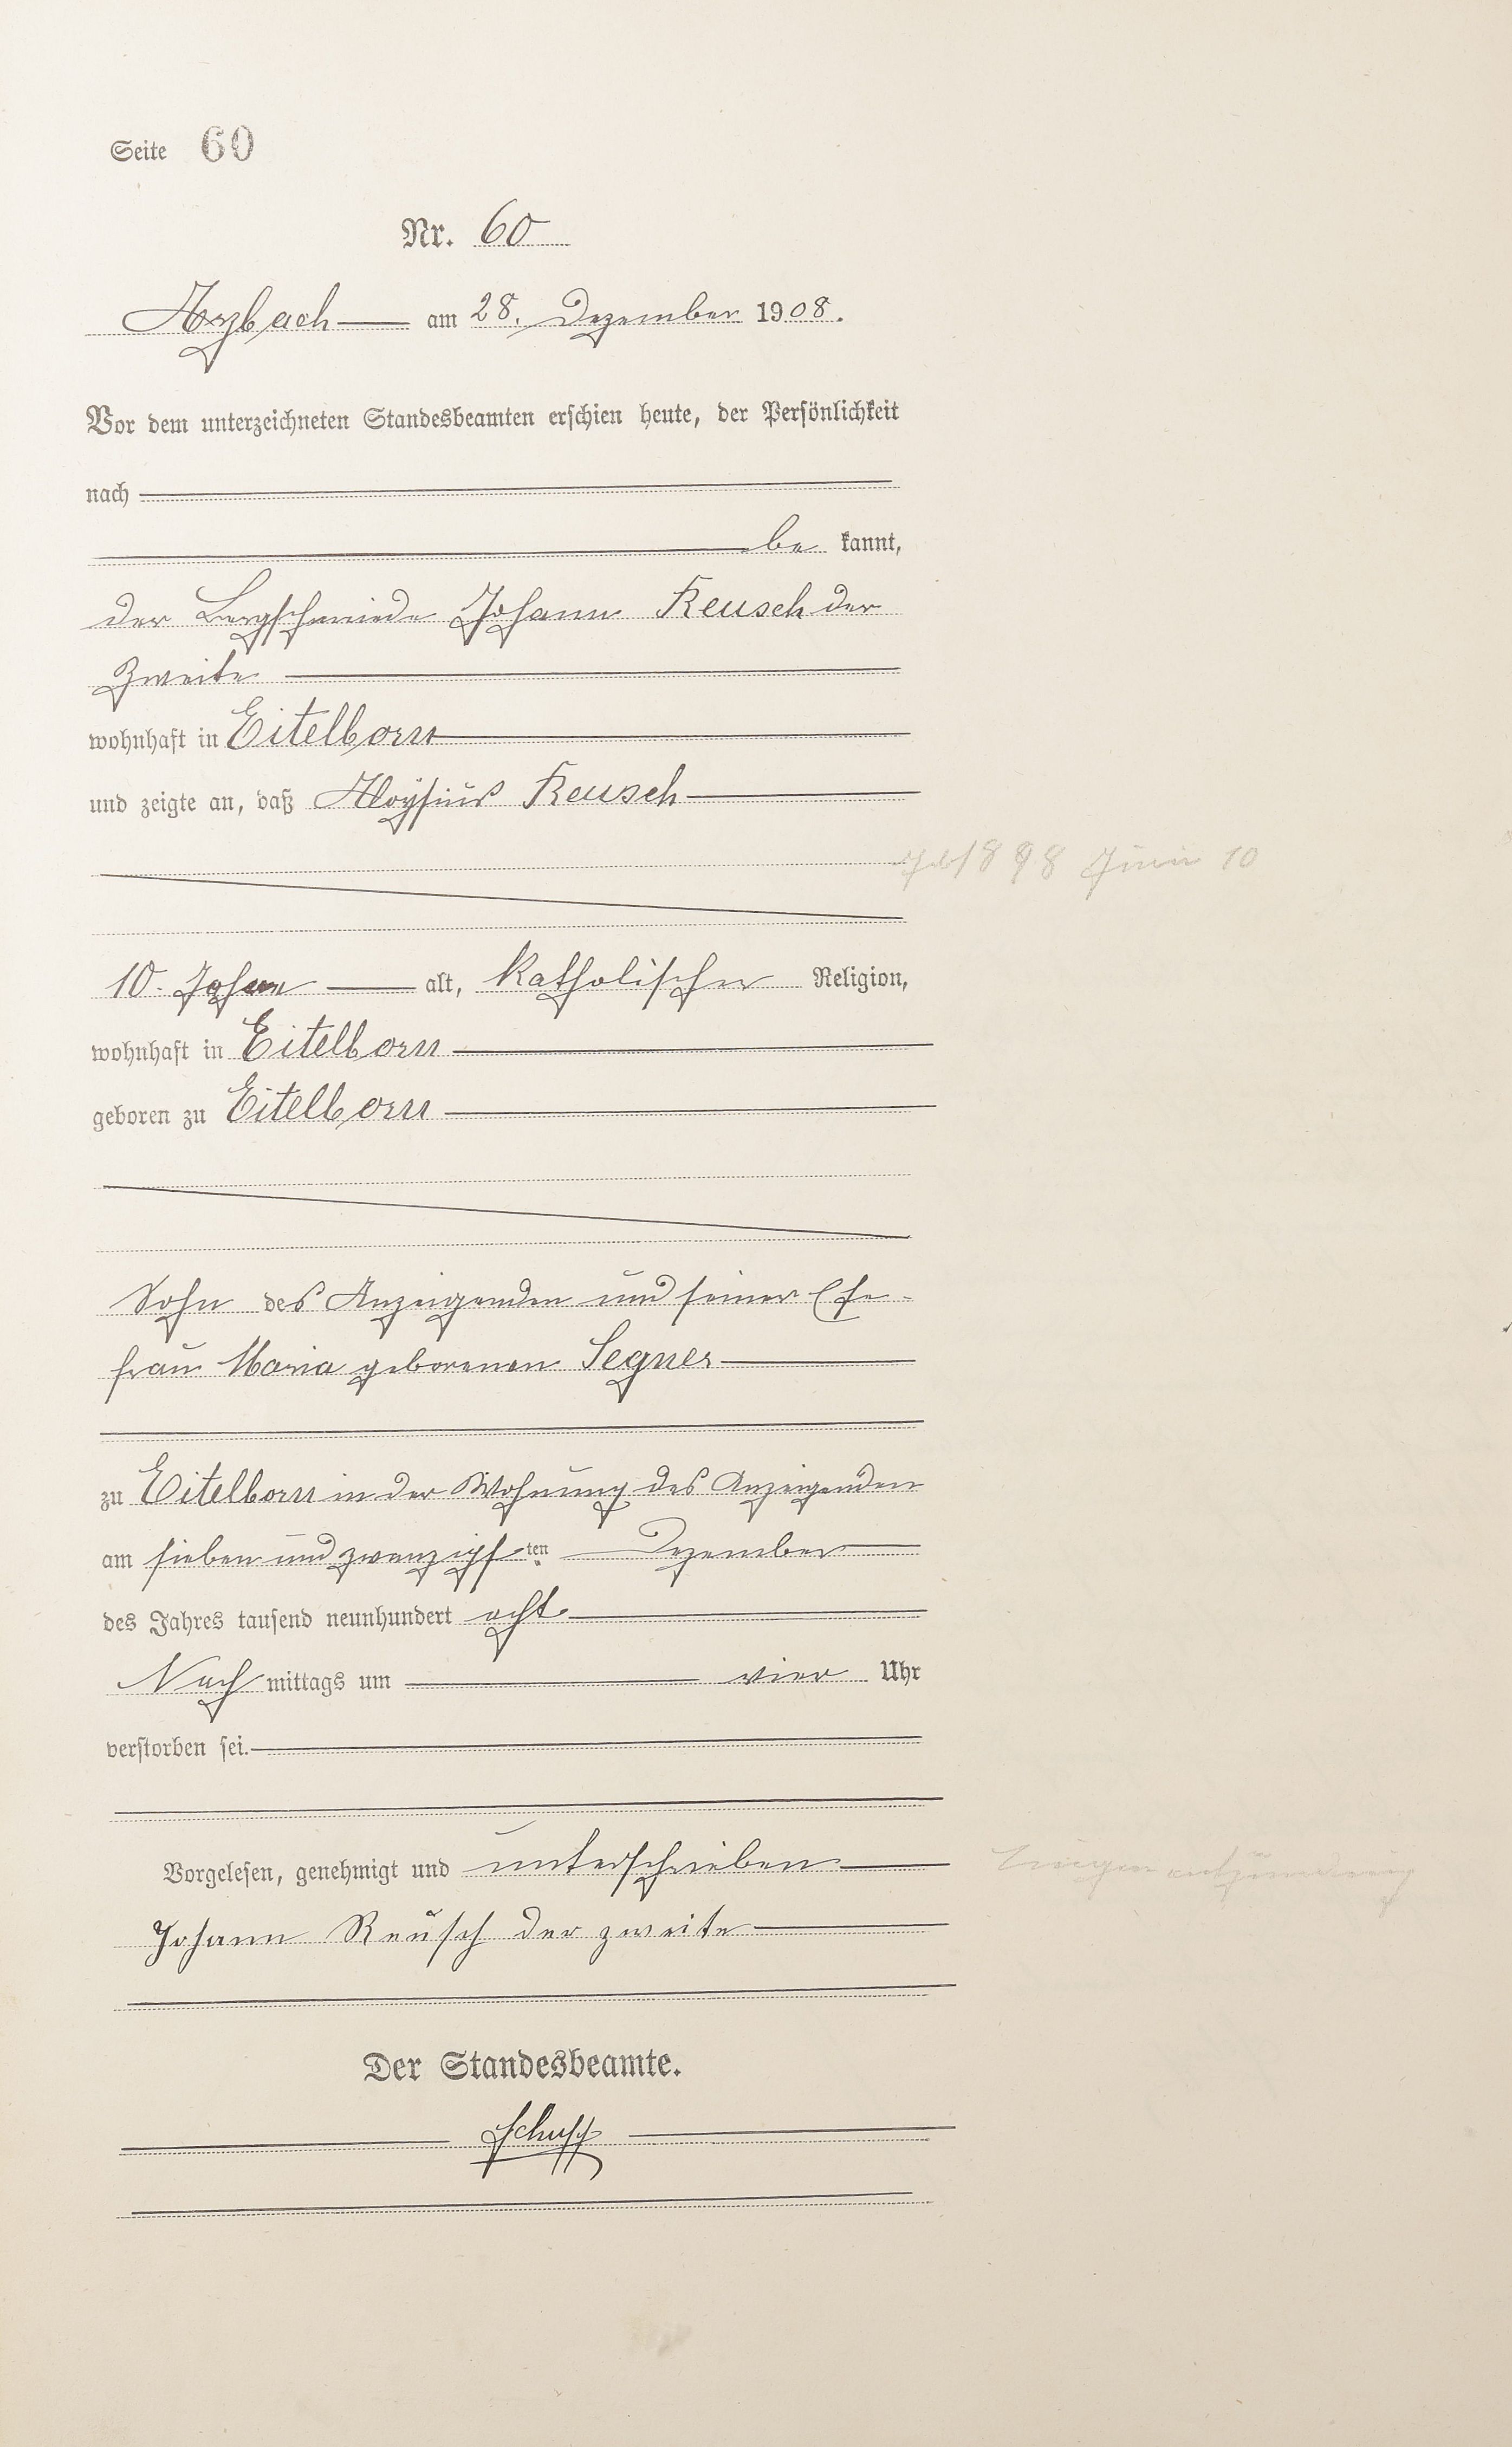 Seite 60
Nr. 60
Arzbach am 28. Dezember 1908.
Vor dem unterzeichneten Standesbeamten erschien heute, der Persönlichkeit
nach
be kannt,
der Bergschmiede Johann Reusch der
Zweite
wohnhaft in Eitelborn
und zeigte an, daß Aloysius Reusch
1898 Juni 10
10 Jahre alt, katholischer Religion,
wohnhaft in Eitelborn
geboren zu Eitelborn
Sohn des Anzeigenden und seiner Ehe-
frau Maria geborenen Segner
zu Eitelborn in der Wohnung des Anzeigenden
am sieben und zwanzigsten Dezember
des Jahres tausend neunhundert acht
Nach mittags um vier Uhr
verstorben sei.
Vorgelesen, genehmigt und unterschrieben
Lungenentzündung
Johann Reusch der zweite
Der Standesbeamte.